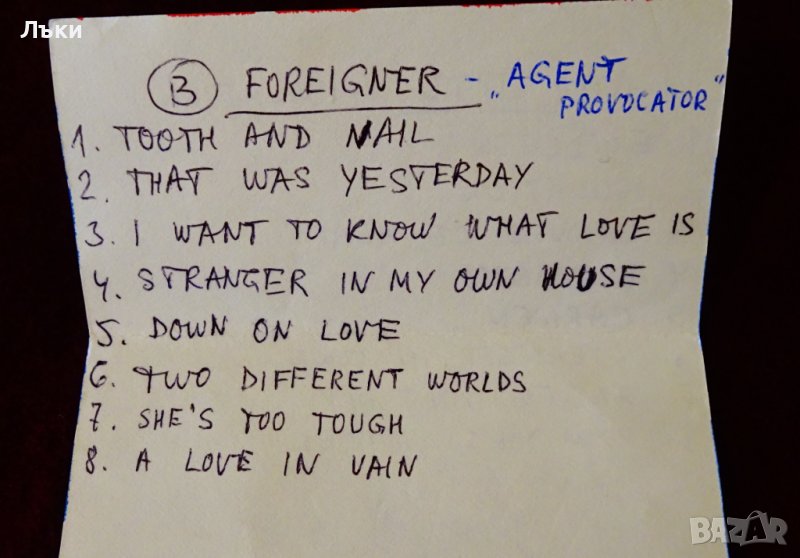 Лъки
B FOREIGNER - „AGENT
PROVOCATOR"
1. TOOTH AND NAIL
2. THAT WAS YESTERDAY
3. I WANT TO KNOW WHAT LOVE IS
4. STRANGER IN MY OWN HOUSE
5. DOWN ON LOVE
6. TWO DIFFERENT WORLDS
7. SHE'S TOO TOUGH
8. A LOVE IN VAIN
BAZAR